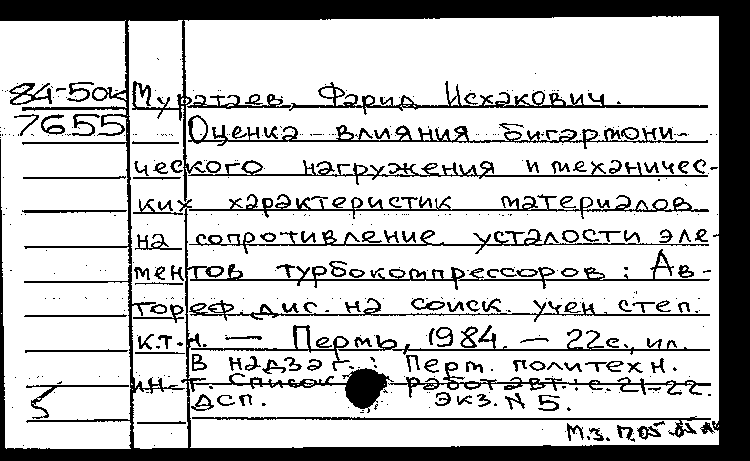 84-5ок Муратаев, Фарид Исхакович.
7655 Оценка влияния бигармони-
ческого нагружения и механичес-
ких характеристик материалов
на сопротивление усталости эле-
ментов турбокомпрессоров: Ав-
тореф. дис. на соиск. учен. степ.
к.т.н. — Пермь, 1984. — 22с., ил.
В надзаг.: Перм. политехн.
ин-т. Список работ авт.: с. 21-22.
5 ДСП. Экз. N 5.